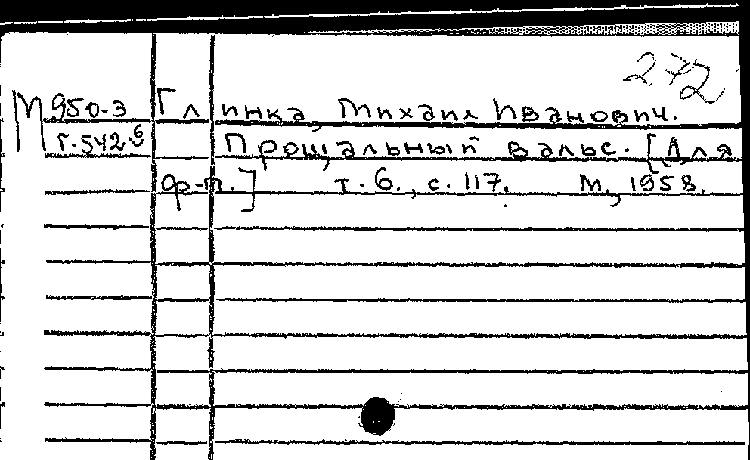 272
М 950-3 Глинка, Михаил Иванович.
Г-542-б Прощальный вальс. [Для
ф-п.] т. 6., с. 117. М., 1958.